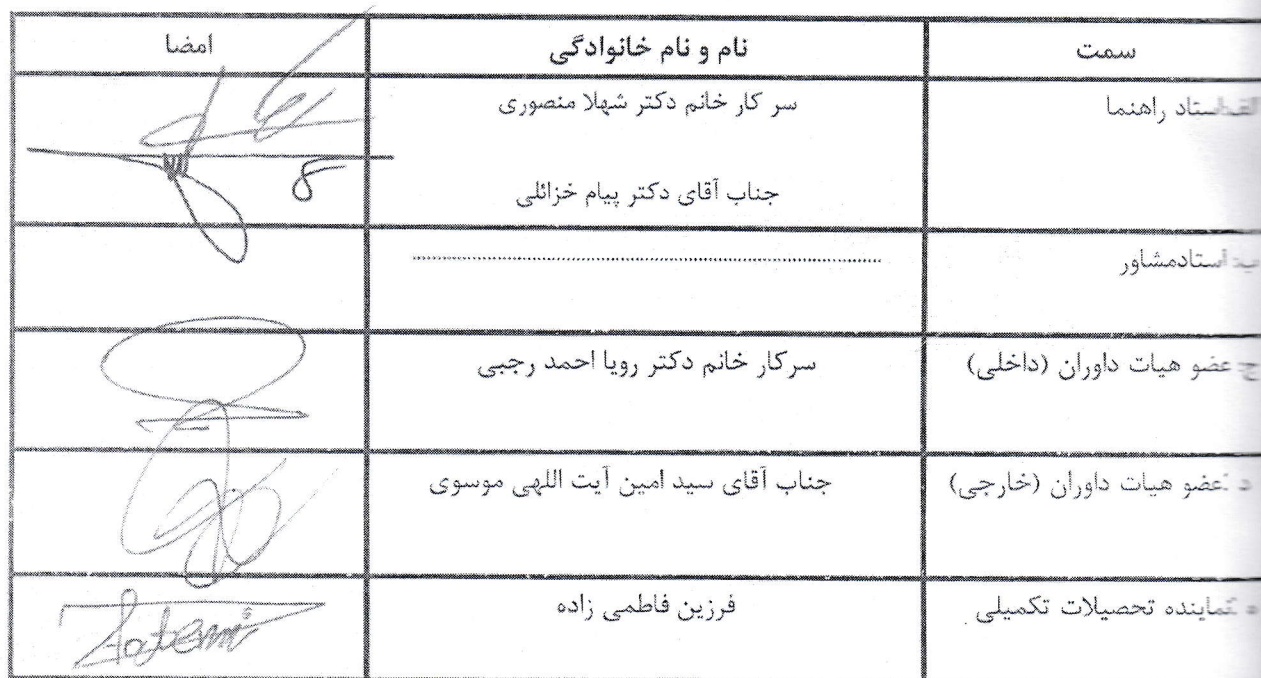 سمت نام و نام خانوادگی امضا
الف:استاد راهنما سر کار خانم دکتر شهلا منصوری
جناب آقای دکتر پیام خزائلی
ب: استادمشاور ................................................
ج: عضو هیات داوران (داخلی) سرکار خانم دکتر رویا احمد رجبی
د :عضو هیات داوران (خارجی) جناب آقای سید امین آیت اللهی موسوی
ه :نماینده تحصیلات تکمیلی فرزین فاطمی زاده
Fatemi